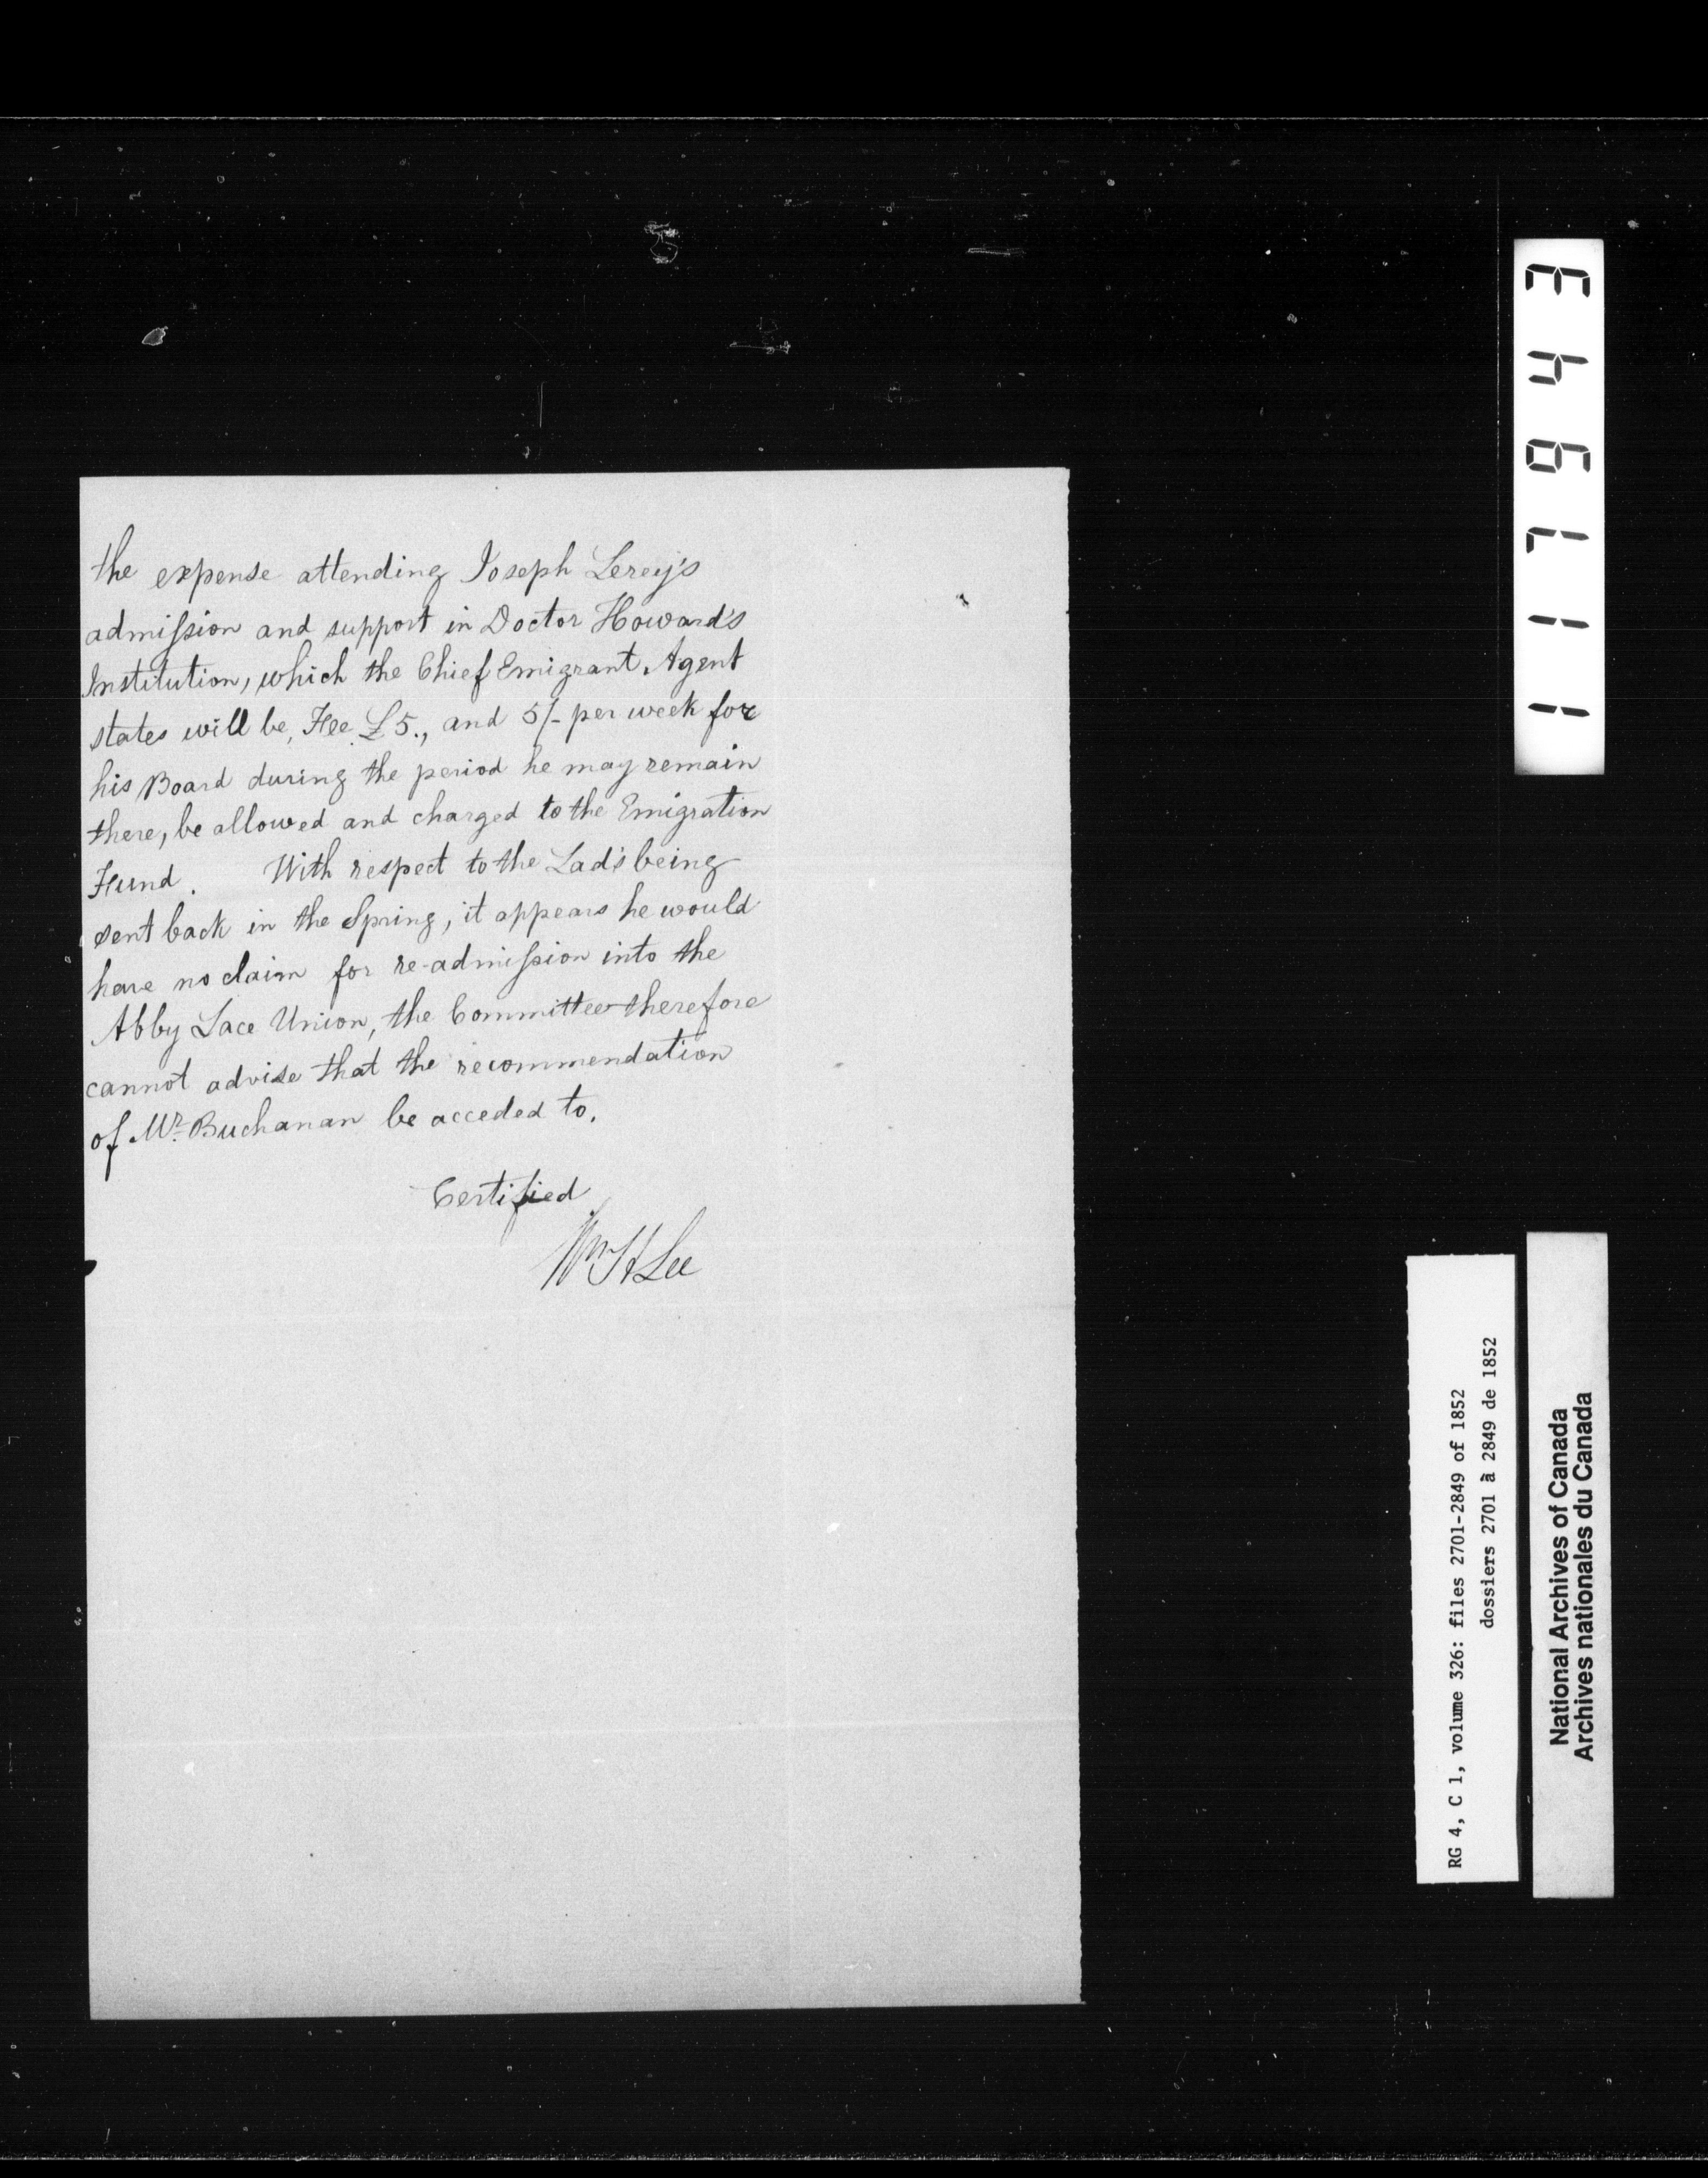 the expense attending Joseph Leroy's
admission and support in Doctor Howard's
Institution, which the Chief Emigrant Agent
states will be, Fee £5., and 5/- per week for
his Board during the period he may remain
there, be allowed and charged to the Emigration
Fund. With respect to the Lad's being
sent back in the Spring, it appears he would
have no claim for re-admission into the
Abby Lace Union, the Committee therefore
cannot advise that the recommendation
of Mr. Buchanan be acceded to.
Certified
Wm H Lee
117943
RG 4, C 1, volume 326: files 2701-2849 of 1852
dossiers 2701 à 2849 de 1852
National Archives of Canada
Archives nationales du Canada